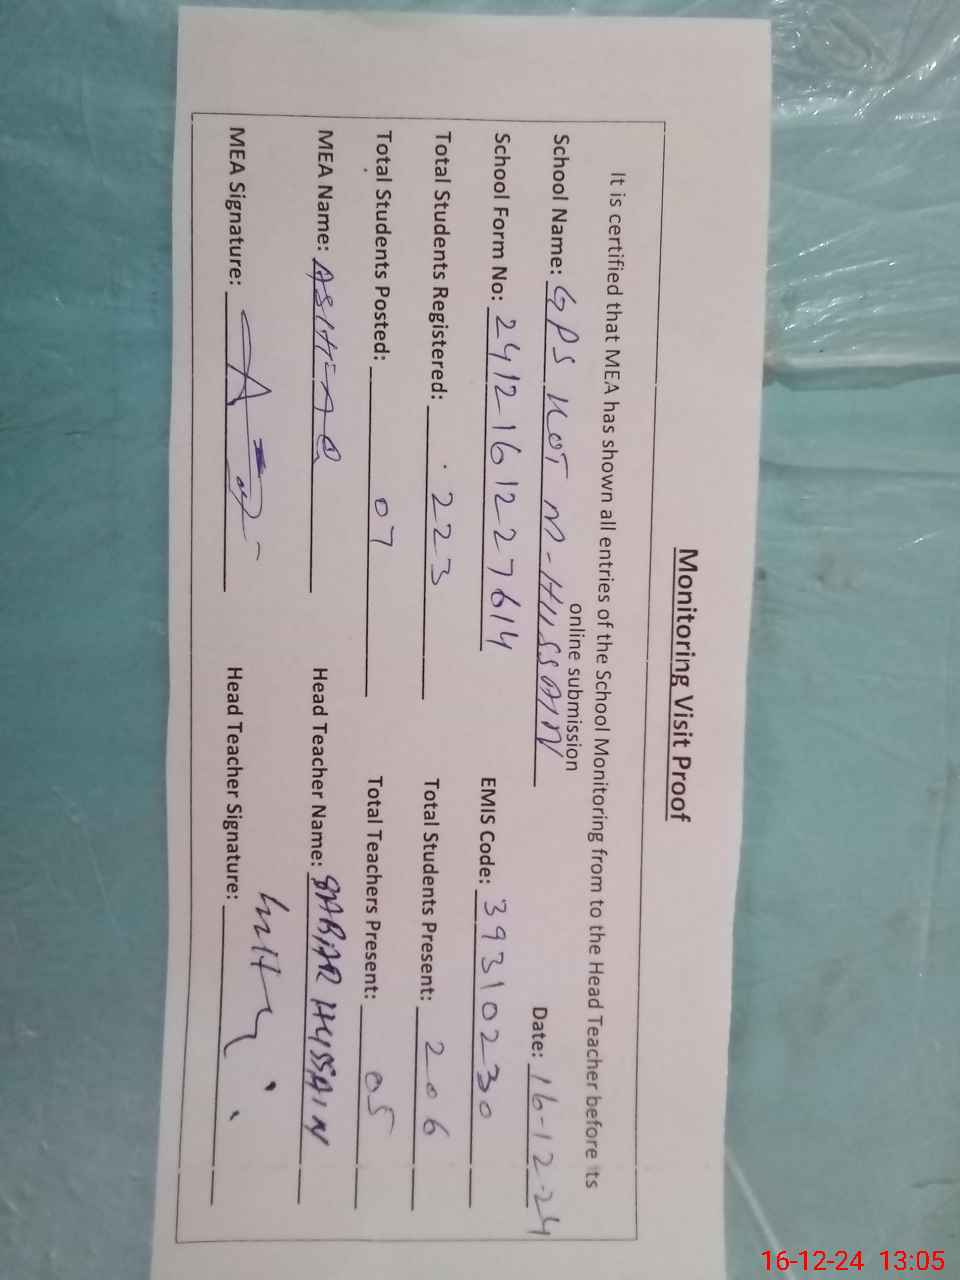 Monitoring Visit Proof
It is certified that MEA has shown all entries of the School Monitoring from to the Head Teacher before its
online submission
School Name: GPS KOT M-HUSSAIN Date: 16-12-24
School Form No: 2412161227614 EMIS Code: 39310230
Total Students Registered: 223 Total Students Present: 206
Total Students Posted: 07 Total Teachers Present: 05
MEA Name: ASHFAQ Head Teacher Name: SABIR HUSSAIN
MEA Signature: Head Teacher Signature:
16-12-24 13:05